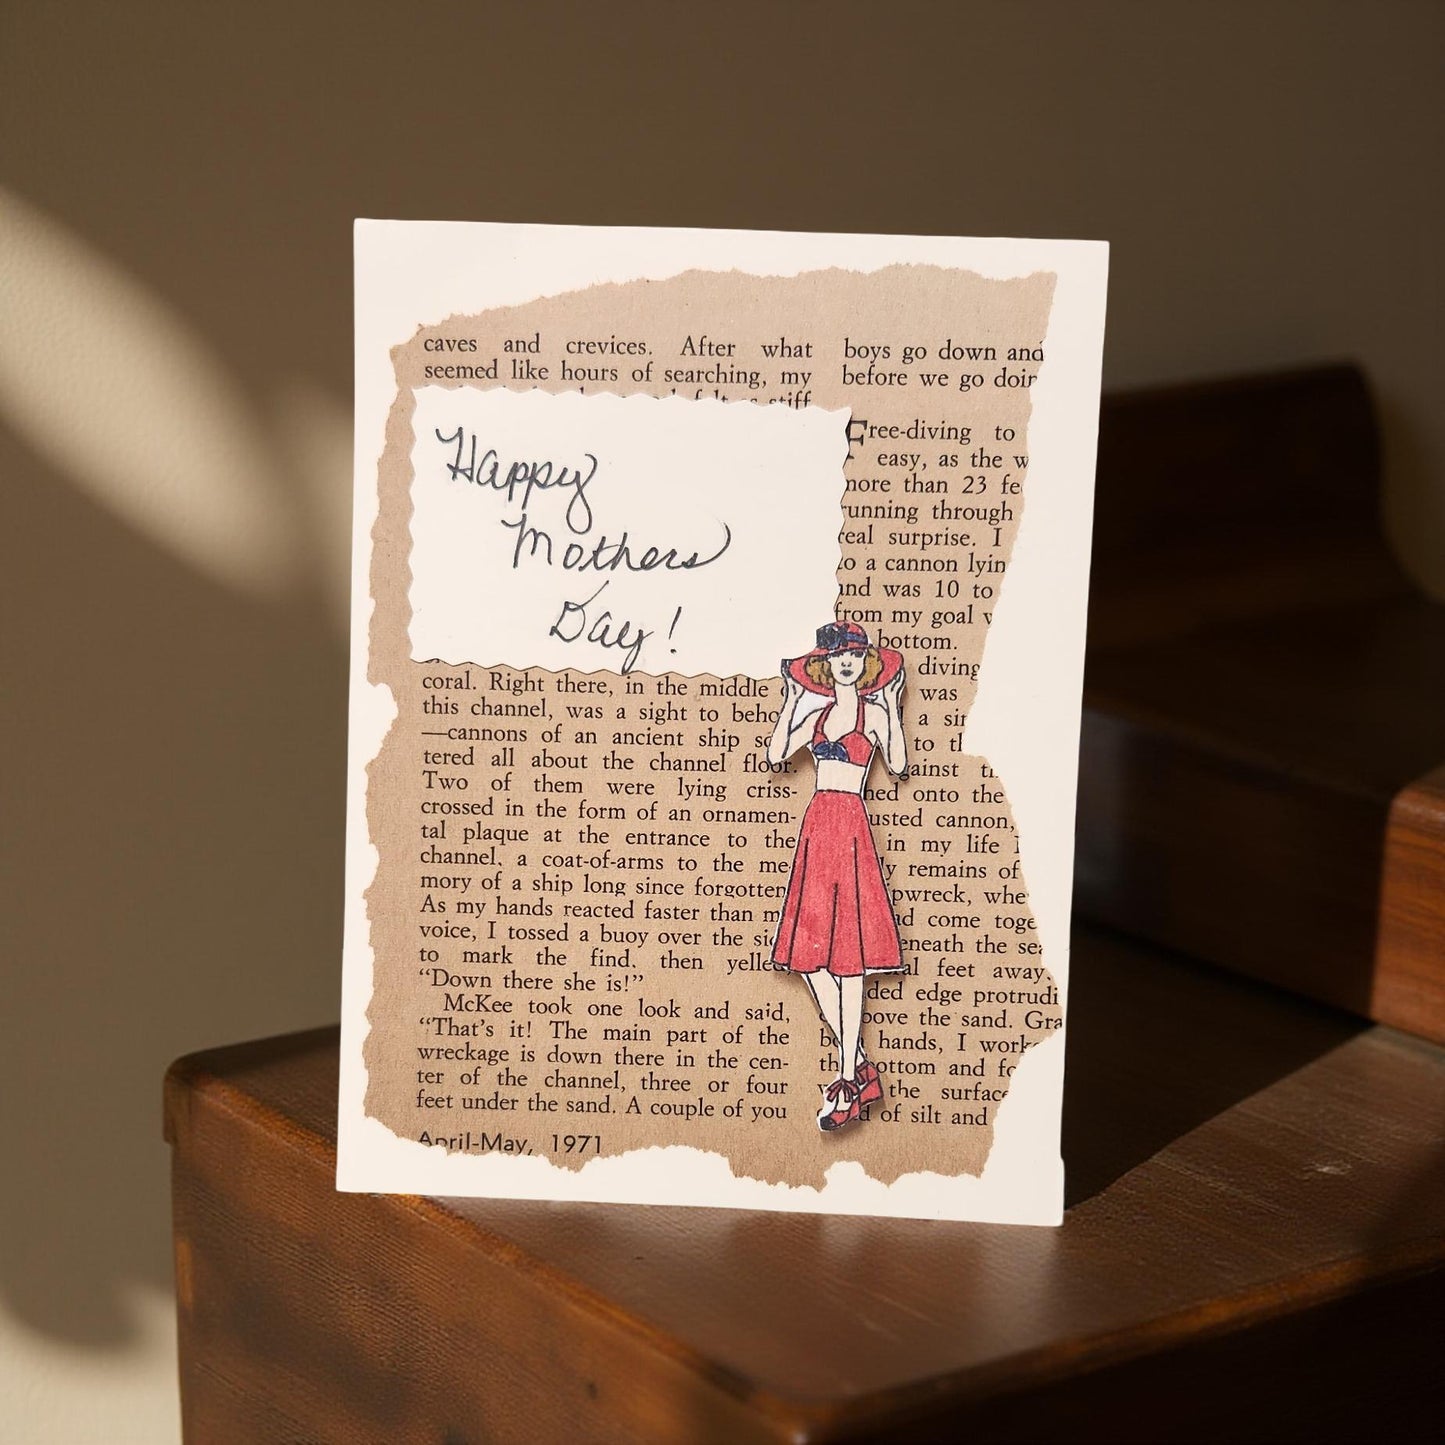 caves and crevices. After what
seemed like hours of searching, my
stiff
Happy
Mothers
Day!
coral. Right there, in the middle
this channel, was a sight to beho
—cannons of an ancient ship sc
tered all about the channel floor.
Two of them were lying criss-
crossed in the form of an ornamen-
tal plaque at the entrance to the
channel, a coat-of-arms to the me-
mory of a ship long since forgotten
As my hands reacted faster than m
voice, I tossed a buoy over the si
to mark the find, then yelled
“Down there she is!”
McKee took one look and said,
“That’s it! The main part of the
wreckage is down there in the cen-
ter of the channel, three or four
feet under the sand. A couple of you
April-May, 1971
boys go down and
before we go doin
Free-diving to
easy, as the w
more than 23 fe
running through
real surprise. I
to a cannon lyin
and was 10 to
from my goal
bottom.
diving
was
a sin
to th
against th
hed onto the
usted cannon,
in my life I
ly remains of
ipwreck, whe
ad come toge
eneath the sea
al feet away.
ded edge protrudi
bove the sand. Gra
hands, I work
ottom and fo
the surface
d of silt and